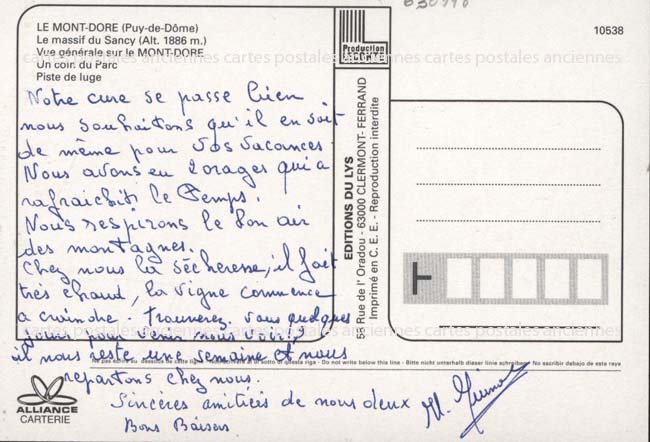 630990
LE MONT-DORE (Puy-de-Dôme)
Le massif du Sancy (Alt. 1886 m.)
Vue générale sur le MONT-DORE
Un coin du Parc
Piste de luge
10538
Production
LECONTE
Notre cure se passe bien
nous souhaitons qu'il en soit
de même pour vos vacances.
Nous avons eu 2 orages qui a
rafraichit le temps.
Nous respirons le bon air
des montagnes.
Chez nous la sécheresse, il fait
très chaud, la vigne commence
a craindre. Trouverez vous quelques
jours pour venir nous voir?
il nous reste une semaine et nous
repartons chez nous.
Sincères amitiés de nous deux
Bons Baisers
M.
EDITIONS DU LYS
56 Rue de l'Oradou - 63000 CLERMONT-FERRAND
Imprimé en C.E.E. - Reproduction interdite
Ne pas écrire au dessous de cette ligne - di sotto di questa riga - Do not write below this line - Bitte nicht unterhalb dieser linie schreiben - No escribir debajo de este reya
ALLIANCE
CARTERIE
cartes postales anciennes cartes postales anciennes cartes postales anciennes
cartes postales anciennes cartes postales anciennes cartes postales anciennes